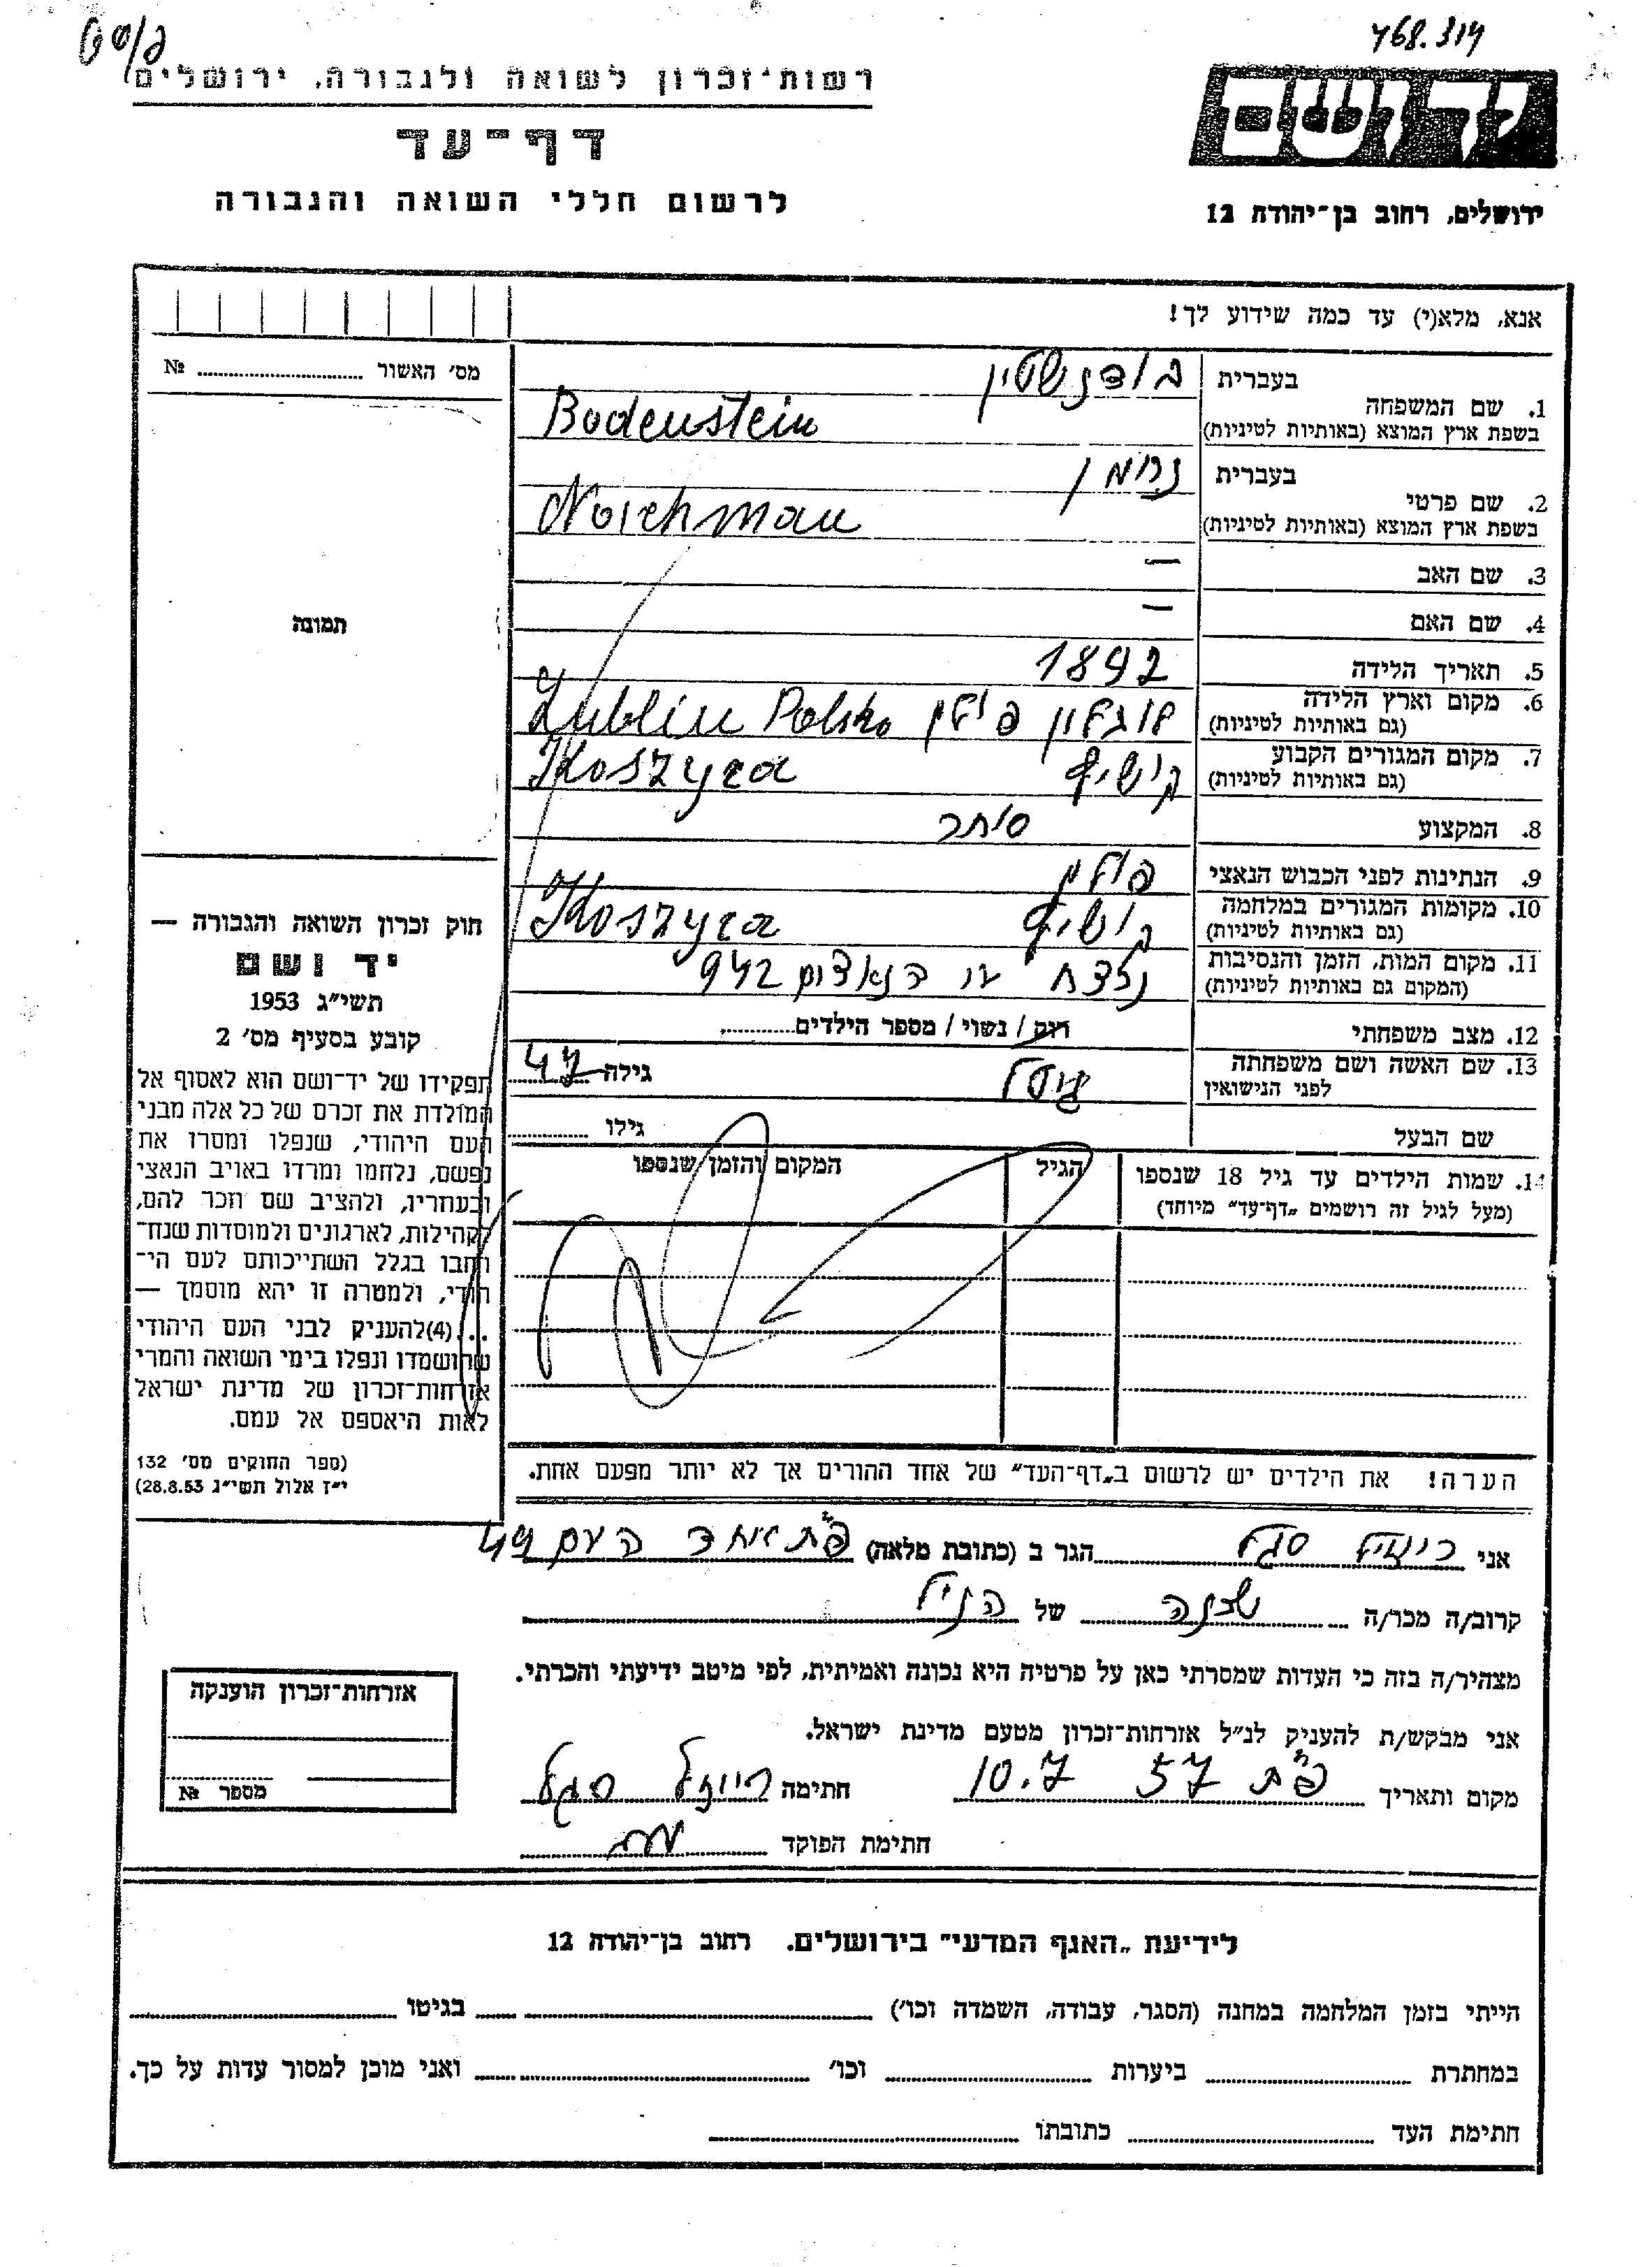 468.314
רשות־זכרון לשואה ולגבורה, ירושלים
דף־עד
לרשום חללי השואה והגבורה
ידושם
ירושלים, רחוב בן־יהודה 12
אנא, מלא(י) עד כמה שידוע לך!
מס׳ האשור № ..........
תמונה
1. שם המשפחה בעברית בודנשטין
בשפת ארץ המוצא (באותיות לטיניות) Bodenstein
2. שם פרטי בעברית נחמן
בשפת ארץ המוצא (באותיות לטיניות) Noichman
3. שם האב —
4. שם האם —
5. תאריך הלידה 1892
6. מקום וארץ הלידה לובלין פולין Lublin Polsko
(גם באותיות לטיניות)
7. מקום המגורים הקבוע Koszyra
(גם באותיות לטיניות)
8. המקצוע סוחר
9. הנתינות לפני הכבוש הנאצי פולין
10. מקומות המגורים במלחמה Koszyra
(גם באותיות לטיניות)
11. מקום המות, הזמן והנסיבות נרצח ע״י הנאצים 942
(המקום גם באותיות לטיניות)
12. מצב משפחתי רווק / נשוי / מספר הילדים..........
13. שם האשה ושם משפחתה
לפני הנישואין גילה 47
שם הבעל גילו ..........
14. שמות הילדים עד גיל 18 שנספו הגיל המקום והזמן שנספו
(מעל לגיל זה רושמים „דף־עד״ מיוחד)
הערה! את הילדים יש לרשום ב„דף־העד״ של אחד ההורים אך לא יותר מפעם אחת.
חוק זכרון השואה והגבורה —
יד ושם
תשי״ג 1953
קובע בסעיף מס׳ 2
תפקידו של יד־ושם הוא לאסוף אל
המולדת את זכרם של כל אלה מבני
העם היהודי, שנפלו ומסרו את
נפשם, נלחמו ומרדו באויב הנאצי
ובעוזריו, ולהציב שם וזכר להם,
לקהילות, לארגונים ולמוסדות שנח־
רבו בגלל השתייכותם לעם הי־
הודי, ולמטרה זו יהא מוסמך —
...(4)להעניק לבני העם היהודי
שהושמדו ונפלו בימי השואה והמרי
אזרחות־זכרון של מדינת ישראל
לאות היאספם אל עמם.
(ספר החוקים מס׳ 132
י״ז אלול תשי״ג 28.8.53)
אני רייזל סגל הגר ב (כתובת מלאה) פ״ת אחד העם 44
קרוב/ה מכר/ה שכנה של הנ״ל
מצהיר/ה בזה כי העדות שמסרתי כאן על פרטיה היא נכונה ואמיתית, לפי מיטב ידיעתי והכרתי.
אני מבקש/ת להעניק לנ״ל אזרחות־זכרון מטעם מדינת ישראל.
מקום ותאריך פ״ת 10.7 57 חתימה רייזל סגל
חתימת הפוקד
אזרחות־זכרון הוענקה
מספר №
לידיעת „האגף המדעי״ בירושלים. רחוב בן־יהודה 12
הייתי בזמן המלחמה במחנה (הסגר, עבודה, השמדה וכו׳) .......... בגיטו ..........
במחתרת .......... ביערות .......... וכו׳ .......... ואני מוכן למסור עדות על כך.
חתימת העד .......... כתובתו ..........